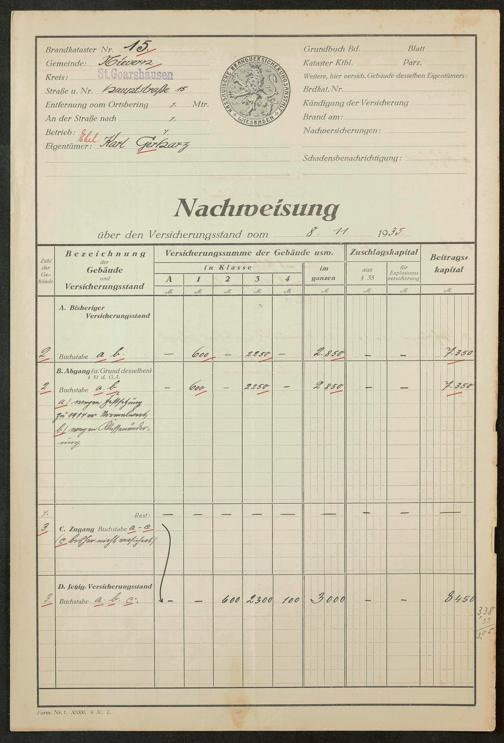 Brandkataster Nr. 15
Gemeinde:
Kreis: St. Goarshausen
Straße u. Nr. Hauptstraße 15
Entfernung vom Ortsbering Mtr.
An der Straße nach
Betrieb:
Eigentümer: Karl
NASSAUISCHE BRANDVERSICHERUNGSANSTALT WIESBADEN
Grundbuch Bd. Blatt
Kataster Ktbl. Parz.
Weitere, hier versich. Gebäude desselben Eigentümers:
Brdkat. Nr.
Kündigung der Versicherung
Brand am:
Nachversicherungen:
Schadensbenachrichtigung:
Nachweisung
über den Versicherungsstand vom 8. 11 1935
Zahl der Gebäude
Bezeichnung der Gebäude und Versicherungsstand
Versicherungssumme der Gebäude usw.
in Klasse
A 1 2 3 4
im ganzen
Zuschlagskapital
aus § 35
für Explosionsversicherung
Beitragskapital
M. M. M. M. M. M. M. M. M.
A. Bisheriger Versicherungsstand
2 Buchstabe a b. — 600 — 2250 — 2850 — — 7350
B. Abgang (u. Grund desselben)
2 Buchstabe a b — 600 — 2250 — 2850 — — 7350
a) wegen
zu 1914er
b) wegen
Rest: — — — — — — — — —
3 C. Zugang Buchstabe a - c
(c bisher nicht versichert)
D. Jetzig. Versicherungsstand
3 Buchstabe a. b. c. — — 600 2300 100 3000 — — 8450